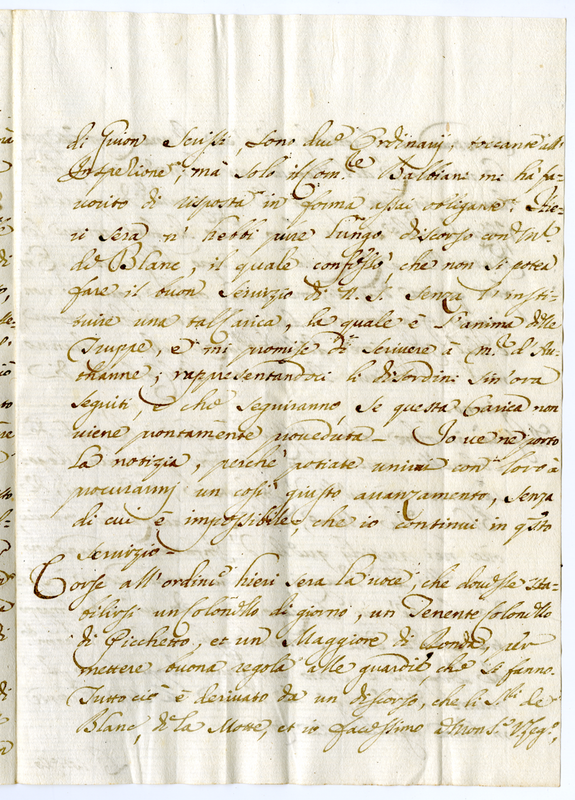 di Giuon scrissi, sono due Ordinarij, toccante all'
Inspezione, mà solo il Com.te Balbiani mi hà fa-
uorito di risposta in forma assai obligante. Hie-
ri sera n' hebbi pure lungo discorso con M.r
de Blanc, il quale confessò che non si potea
fare il buon Seruizio di A. S. senza l' insti-
tuire una tal Carica, la quale è l'anima delle
Truppe, e mi promise di scriuere à m.r d'Au-
channe; rappresentandoci li disordini sin'ora
seguiti, e che seguiranno, se questa Carica non
uiene prontamente proueduta. Io ue ne porto
la notizia, perche potiate unirui con loro à
procurarmi un così giusto auanzamento, senza
di cui è impossibile, che io continui in q.sto
seruizio.
Corse all'ordine hieri sera la uoce, che douesse sta-
bilirsi un Colonello di giorno, un Tenente Colonello
di Picchetto, et un Maggiore di Ronda, per
mettere buona regola alle guardie che si fanno.
Tutto ciò è deriuato da un discorso, che li S.ri de
Blanc, de la Motte, et io facessimo à Mons.r